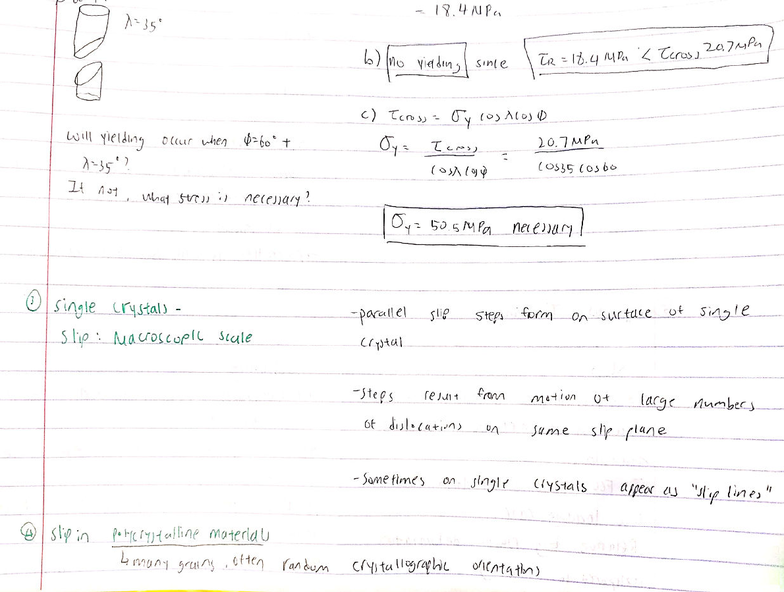 = 18.4 MPa
λ=35°
b) no yielding since τR = 18.4 MPa < τcrss 20.7 MPa
c) τcrss = σy cosλ cosϕ
σy = τcrss / cosλ cosϕ = 20.7 MPa / cos35 cos60
will yielding occur when ϕ=60° +
λ=35°?
If not, what stress is necessary?
σy = 50.5 MPa necessary
③ single crystals -
slip: Macroscopic scale
-parallel slip steps form on surface of single
crystal
-steps result from motion of large numbers
of dislocations on same slip plane
-sometimes on single crystals appear as "slip lines"
④ slip in polycrystalline materials
↳ many grains, often random crystallographic orientations